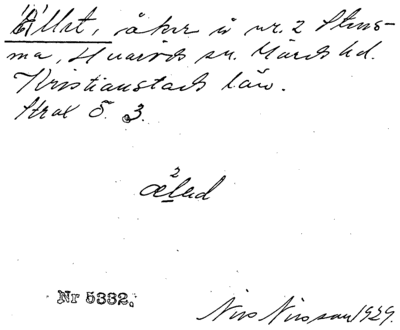 "Ållet", åker å nr. 2 Stens-
ma, Hvaröds sn. Gärds hd.
Kristianstads län.
Strax ö. 3.
2
ælad
Nr 5332.
Nils Nilsson 1929.